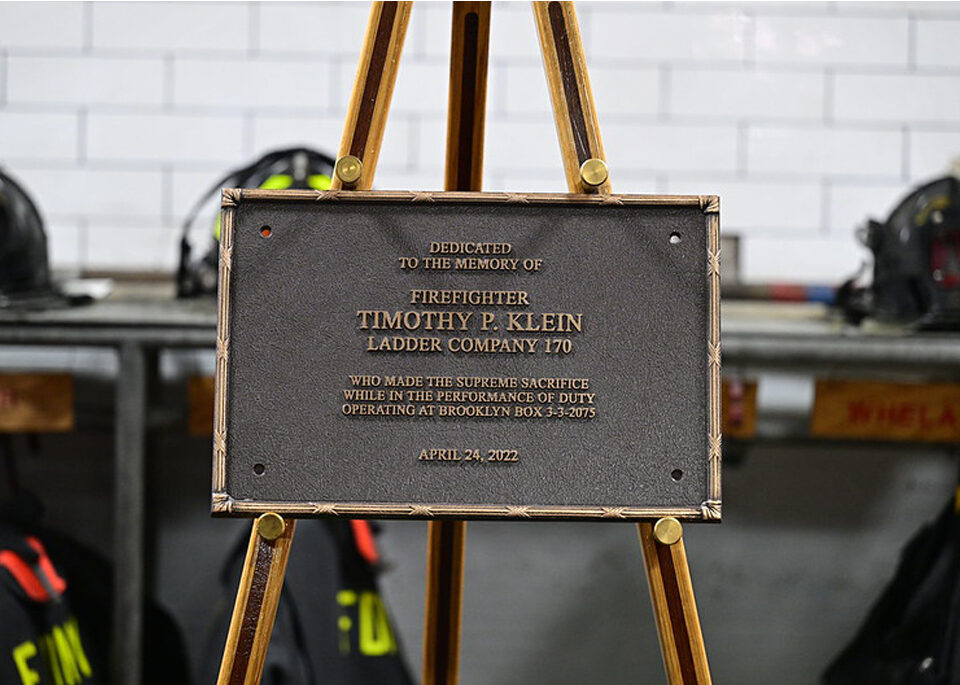 DEDICATED
TO THE MEMORY OF
FIREFIGHTER
TIMOTHY P. KLEIN
LADDER COMPANY 170
WHO MADE THE SUPREME SACRIFICE
WHILE IN THE PERFORMANCE OF DUTY
OPERATING AT BROOKLYN BOX 3-3-2075
APRIL 24, 2022
WHELA